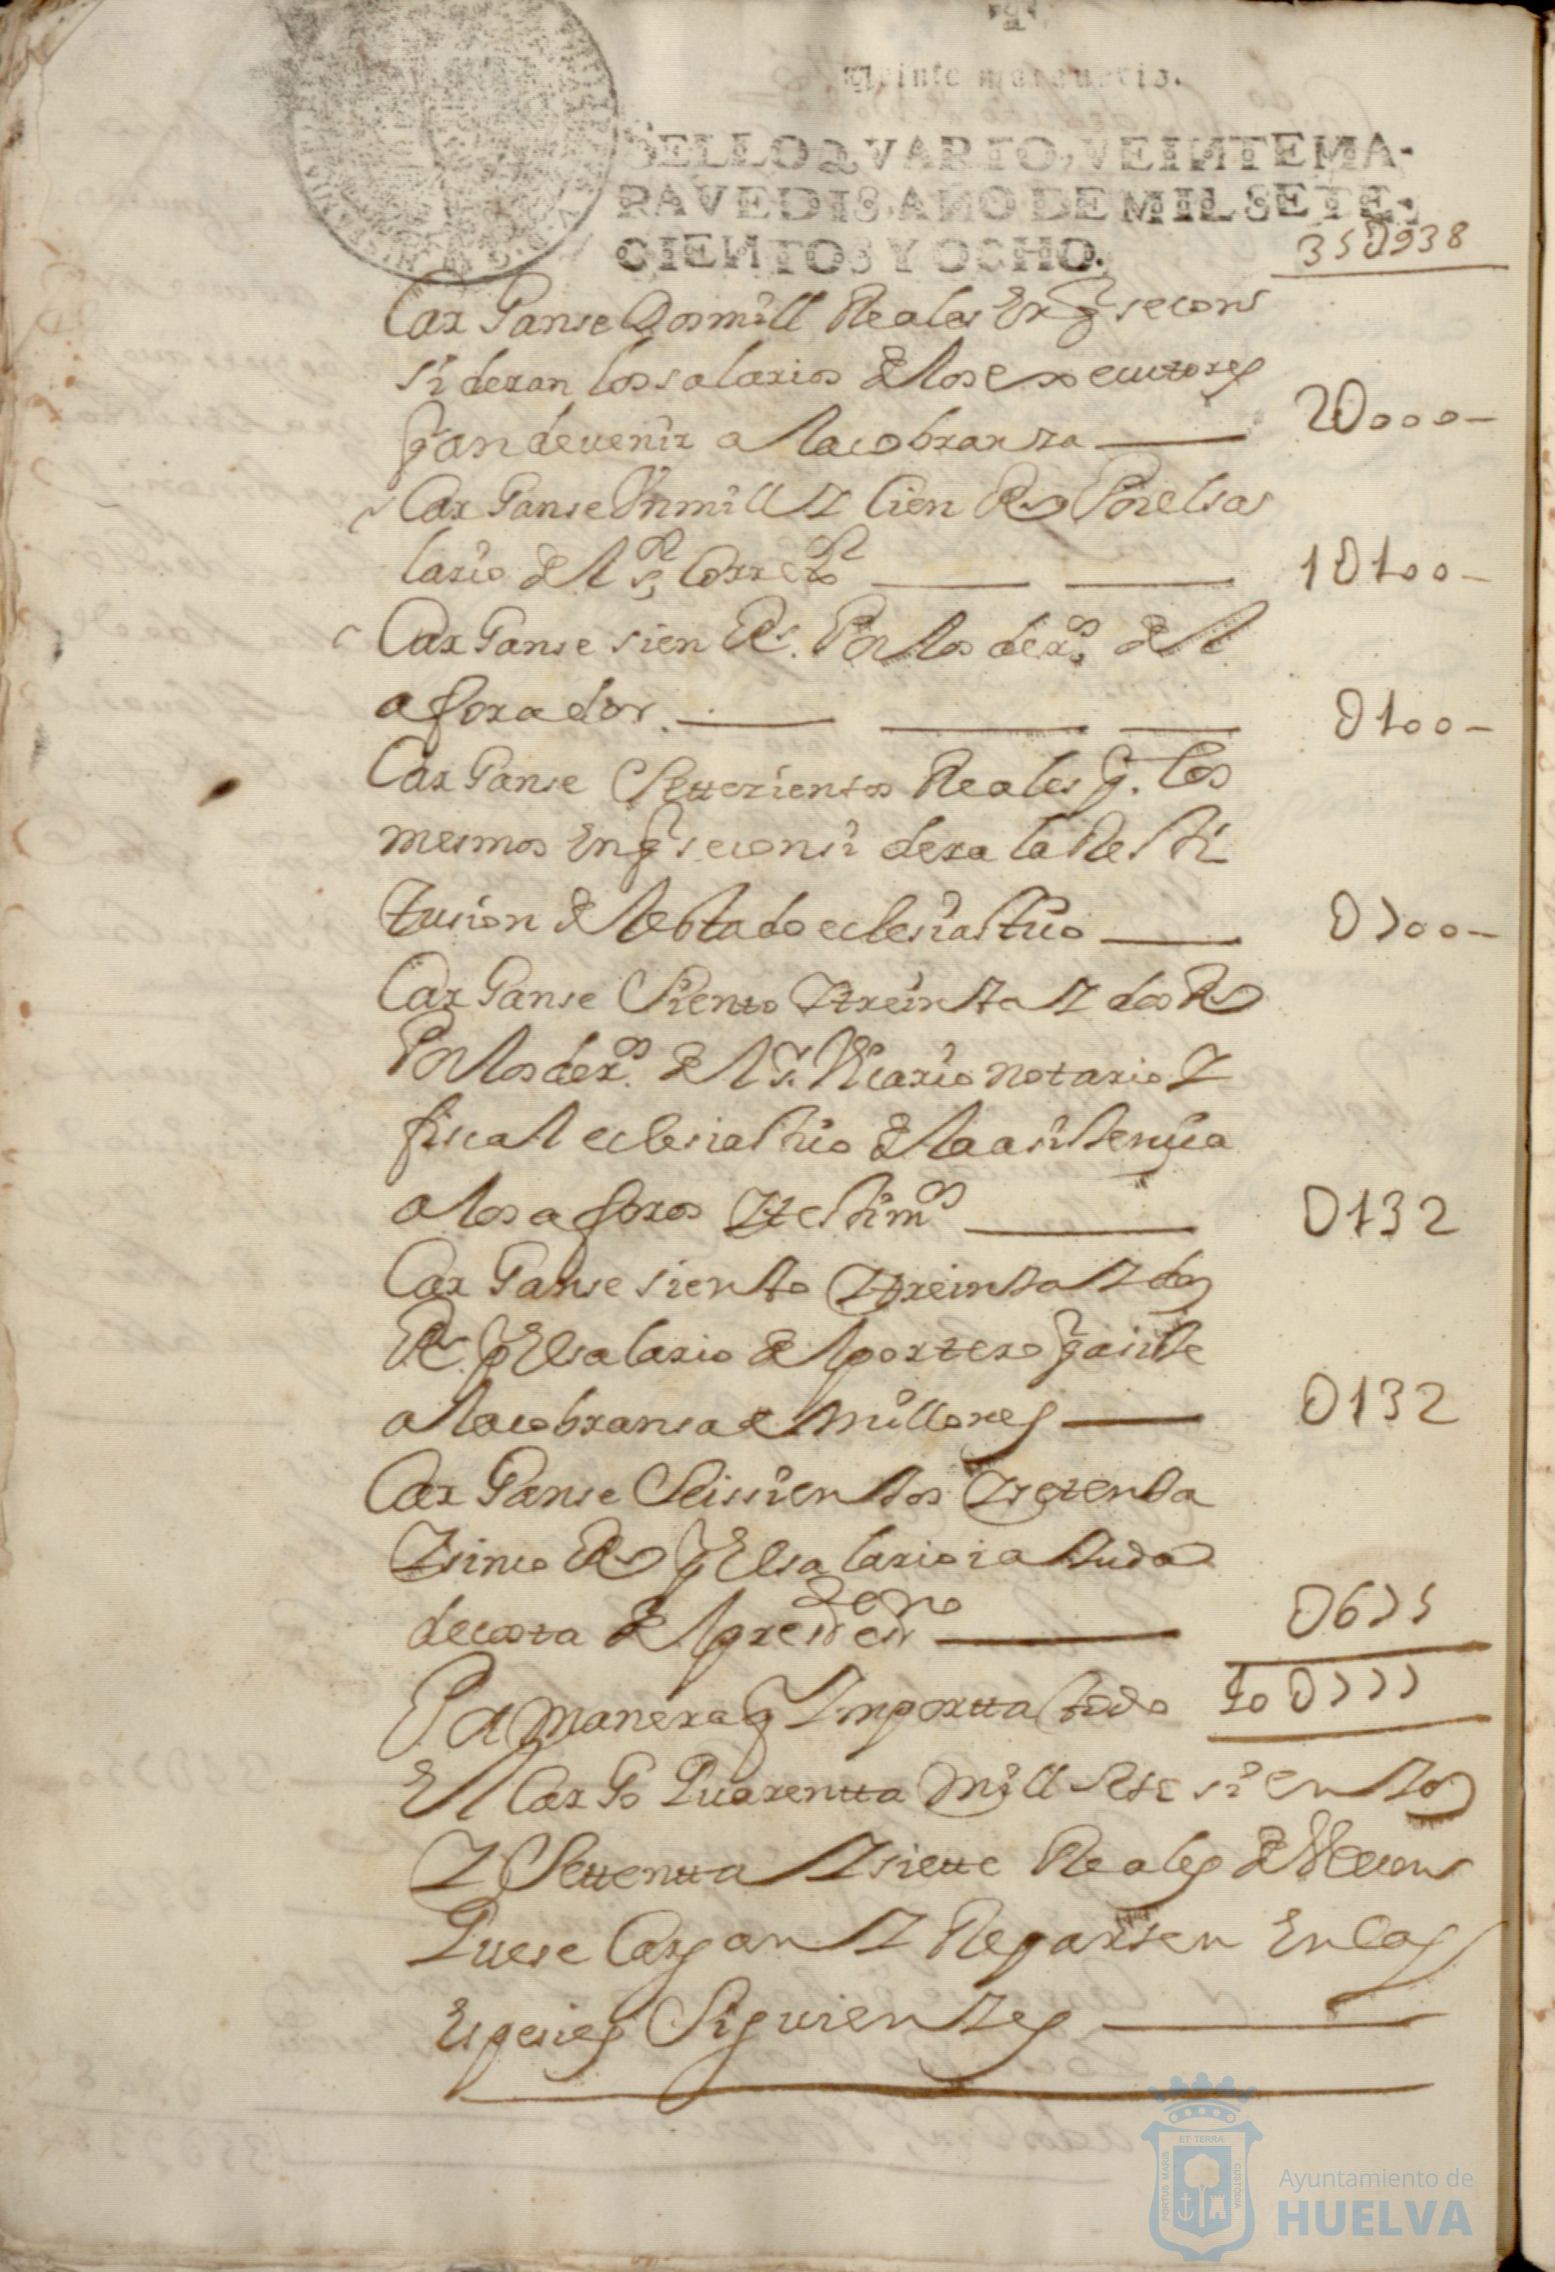 Veinte maravedis.
SELLO QVARTO, VEINTE MA-
RAVEDIS, AÑO DE MIL SETE-
CIENTOS Y OCHO.
35U938
Carganse Dosmill Reales En q̃ secons
sideran los salarios de los executores
q̃ an devenir a la cobransa 2U000
Carganse Vnmill Y Cien Rs Por el sa
lario del sr. Correxor 1U100
Carganse sien Rs. Por los deros del
aforador U100
Carganse Settezientos Reales q̃. los
mesmos En q̃ seconsi dera la Resti
tusion del estado eclesiastico U700
Carganse Siento Ytreinta Y dos Rs
Por los deros. del sr. Vicario notario Y
fiscal eclesiastico de la asistencia
a los aforos Y testimos U132
Carganse siento Ytreinta Y dos
Rs. p El salario del portero q̃ asiste
a la cobransa de millones U132
Carganse Seissientos Y setenta
Y sinco Rs p El salario i a iuda
decosta del U675
Por manera q̃ Importta todo 40U777
El Cargo Quarentta Mill Sete sientos
Y Settentta Y siette Reales de Vellon
Quese Cargan Y Reparten En las
Espesies Siguientes
ET TERRA
PORTUS MARIS
CUSTODIA
Ayuntamiento de
HUELVA